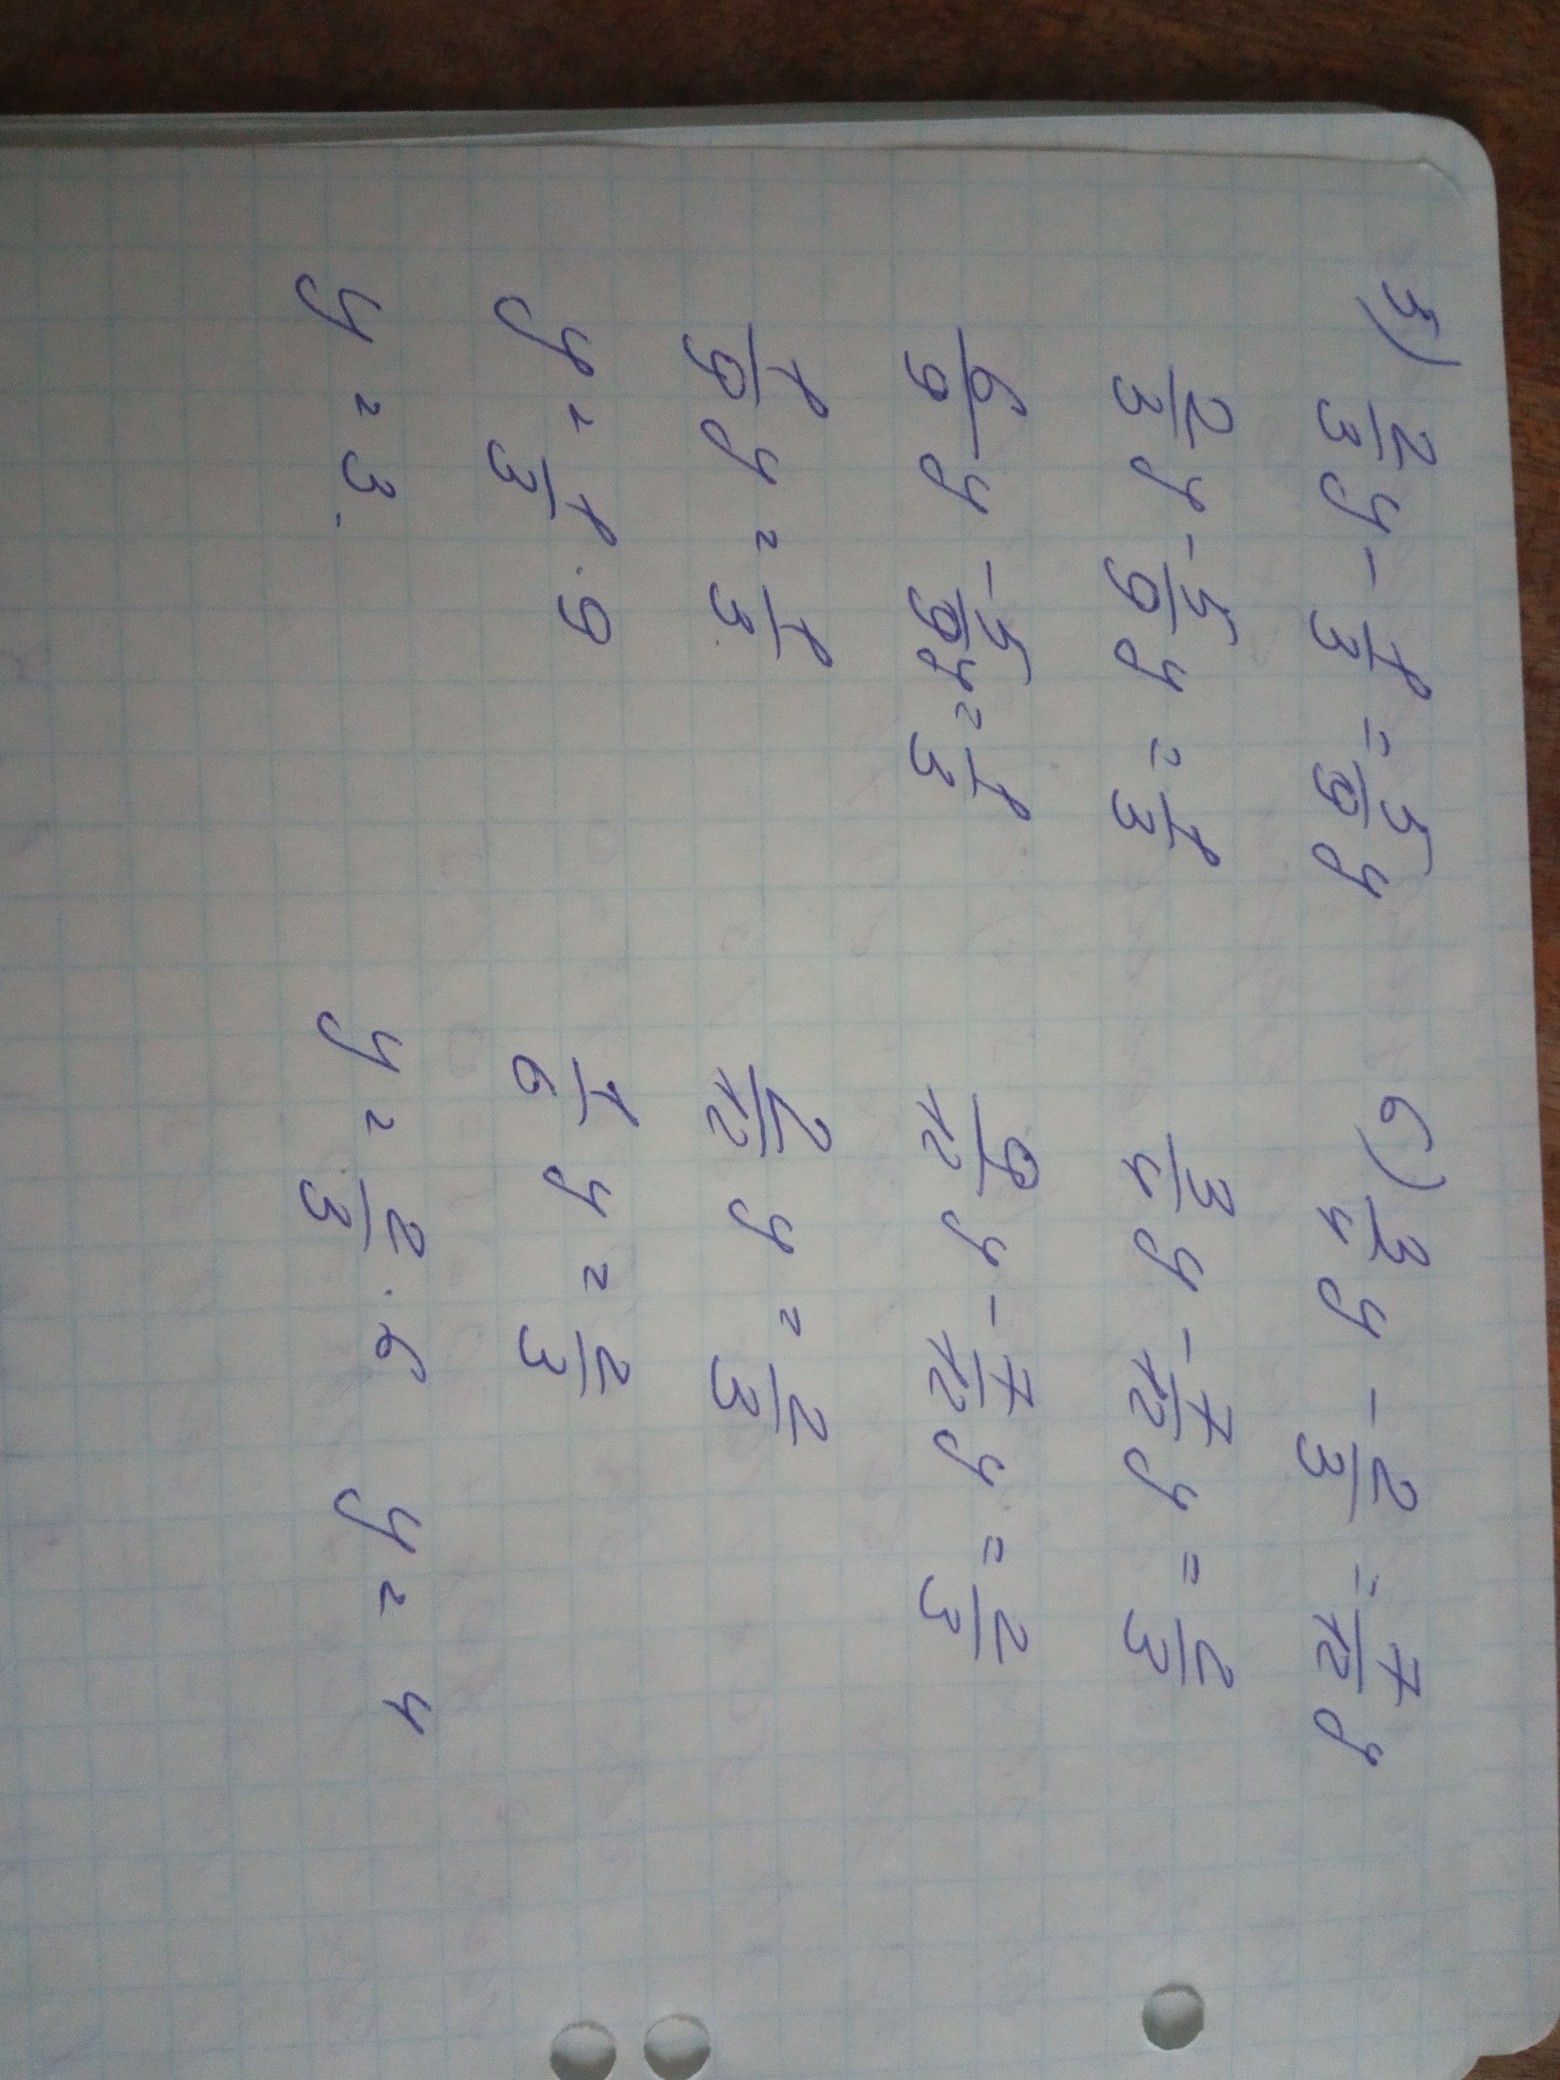 5) 2/3 y - 1/3 = 5/9 y
2/3 y - 5/9 y = 1/3
6/9 y - 5/9 y = 1/3
1/9 y = 1/3
y = 1/3 · 9
y = 3.
6) 3/4 y - 2/3 = 7/12 y
3/4 y - 7/12 y = 2/3
9/12 y - 7/12 y = 2/3
2/12 y = 2/3
1/6 y = 2/3
y = 2/3 · 6 y = 4